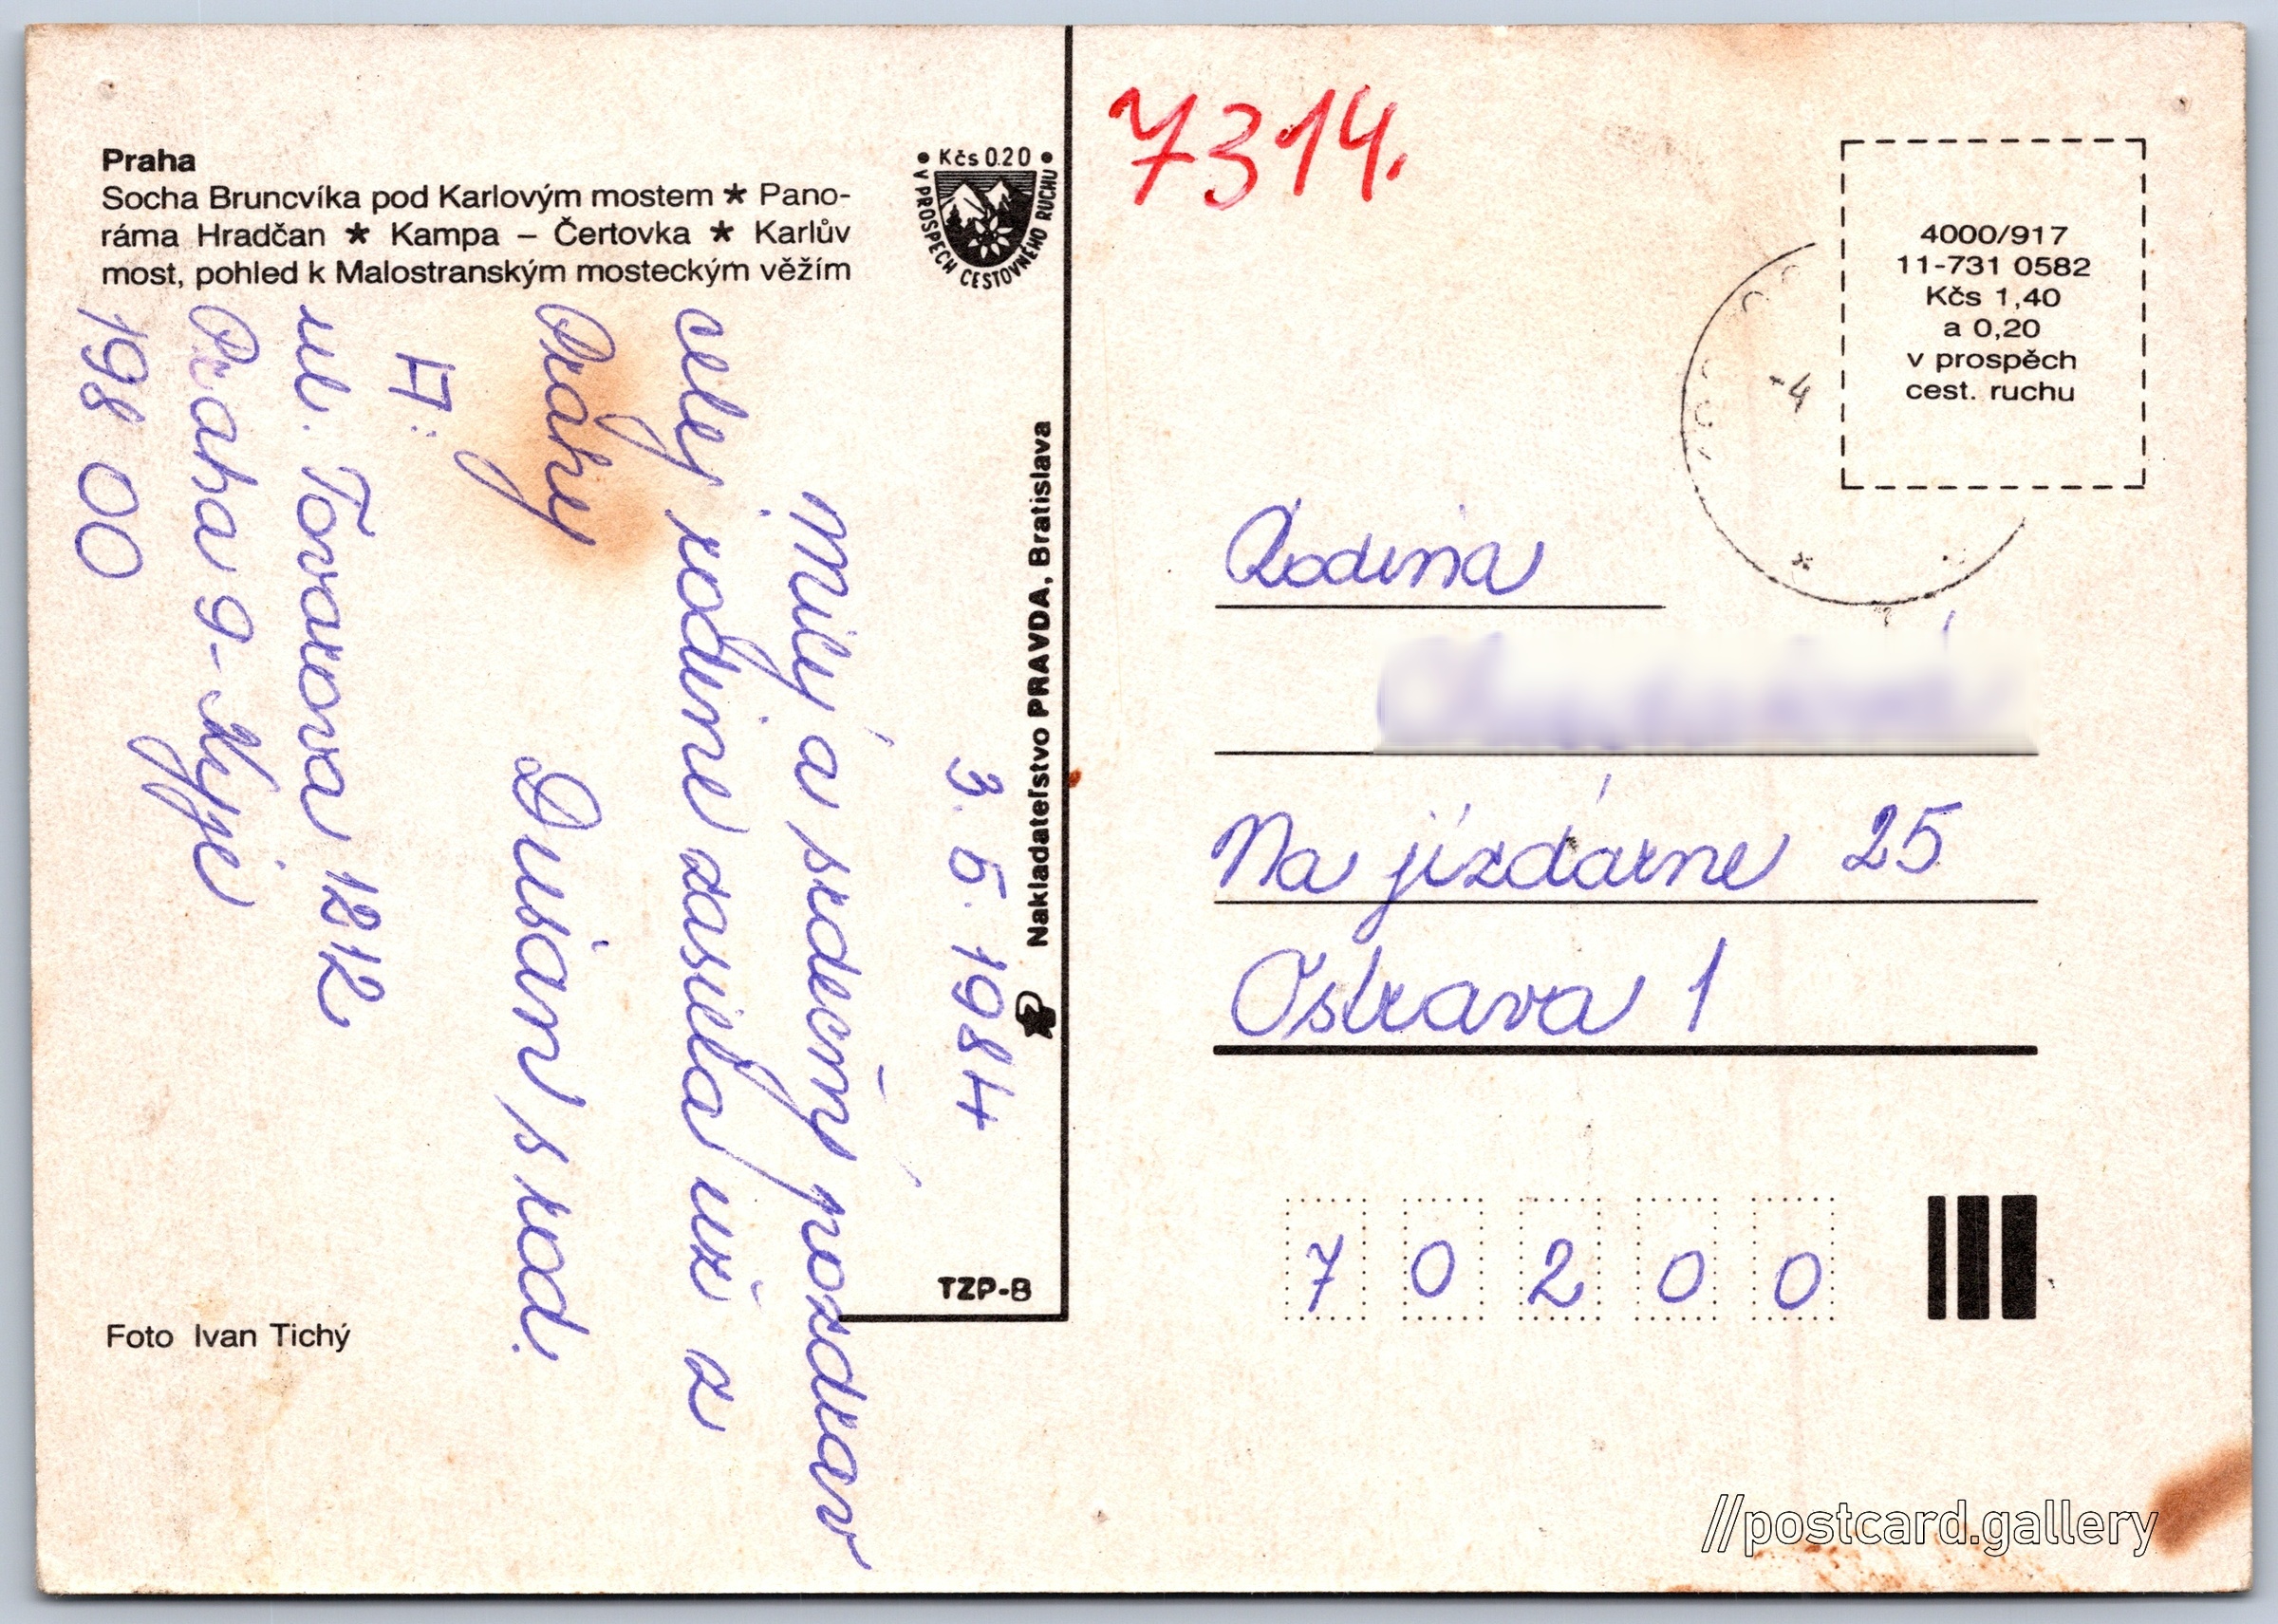 Praha
Socha Bruncvíka pod Karlovým mostem ★ Pano-
ráma Hradčan ★ Kampa – Čertovka ★ Karlův
most, pohled k Malostranským mosteckým věžím
• Kčs 0.20 •
V PROSPECH CESTOVNÉHO RUCHU
3. 5. 1984
Milý a srdečný pozdrav
celej rodine zasiela už z
Prahy
Dušan s rod.
A:
ul. Tovarova 1212
Praha 9 - Kyje
198 00
Nakladateľstvo PRAVDA, Bratislava
TZP-B
Foto Ivan Tichý
7314.
4000/917
11-731 0582
Kčs 1,40
a 0,20
v prospěch
cest. ruchu
-4
Rodina
Na jízdárne 25
Ostrava 1
70200
//postcard.gallery